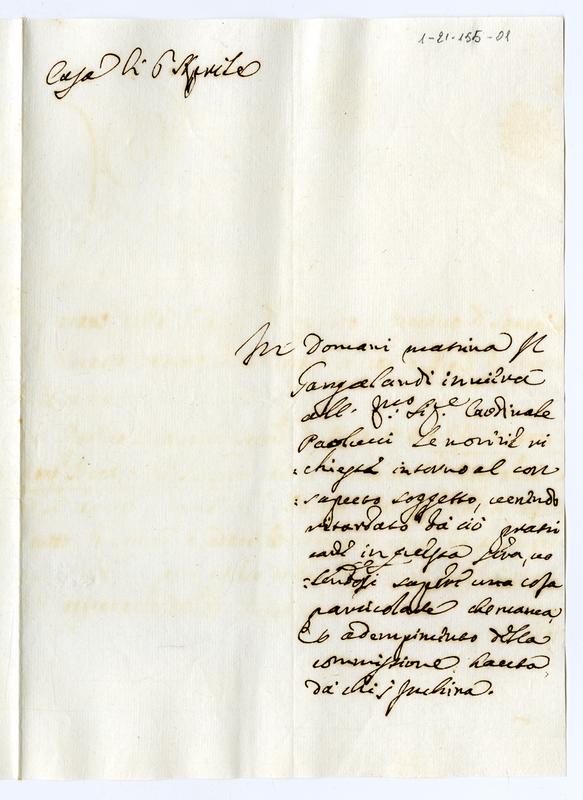 1-21-155-01
Casa li 6 Aprile
Domani matina il
Gangalandi invierà
all' Sig.re Cardinale
Paolucci le notizie ri
:chieste intorno al con
:saputo soggetto, venendo
ritardato da ciò
in questa sera, vo
:lendosi sapere una cosa
particolare che manca,
adempimento della
commissione hauta
da chi s' Inchina.